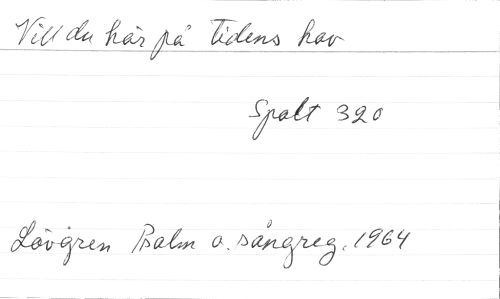 Vill du här på tidens hav
Spalt 320
Lövgren Psalm o. sångreg. 1964